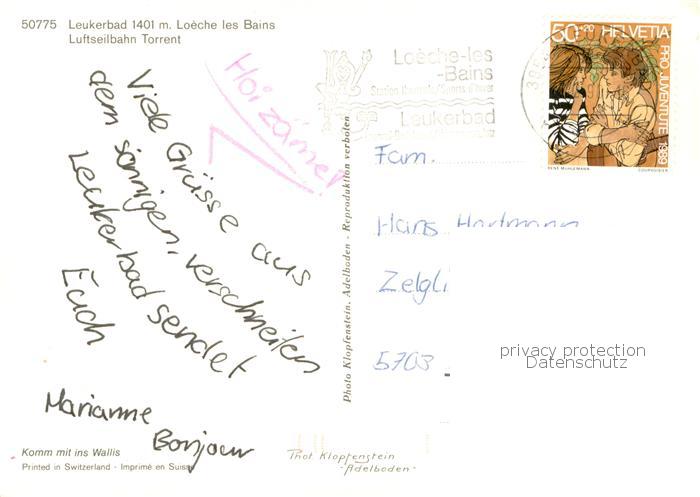 50775 Leukerbad 1401 m. Loèche les Bains
Luftseilbahn Torrent
Viele Grüsse aus
dem sonnigen, verschneiten
Leukerbad sendet
Euch
Marianne
Bonjour
Komm mit ins Wallis
Printed in Switzerland - Imprimé en Suisse
Photo Klopfenstein, Adelboden - Reproduktion verboten
Phot Klopfenstein
- Adelboden -
Loèche-les
-Bains
Station thermale/Sports d'hiver
Leukerbad
50+20 HELVETIA
PRO JUVENTUTE 1989
RENÉ MÜHLEMANN COURVOISIER
Fam.
Hans Hartmann
Zelgli
5703
privacy protection
Datenschutz